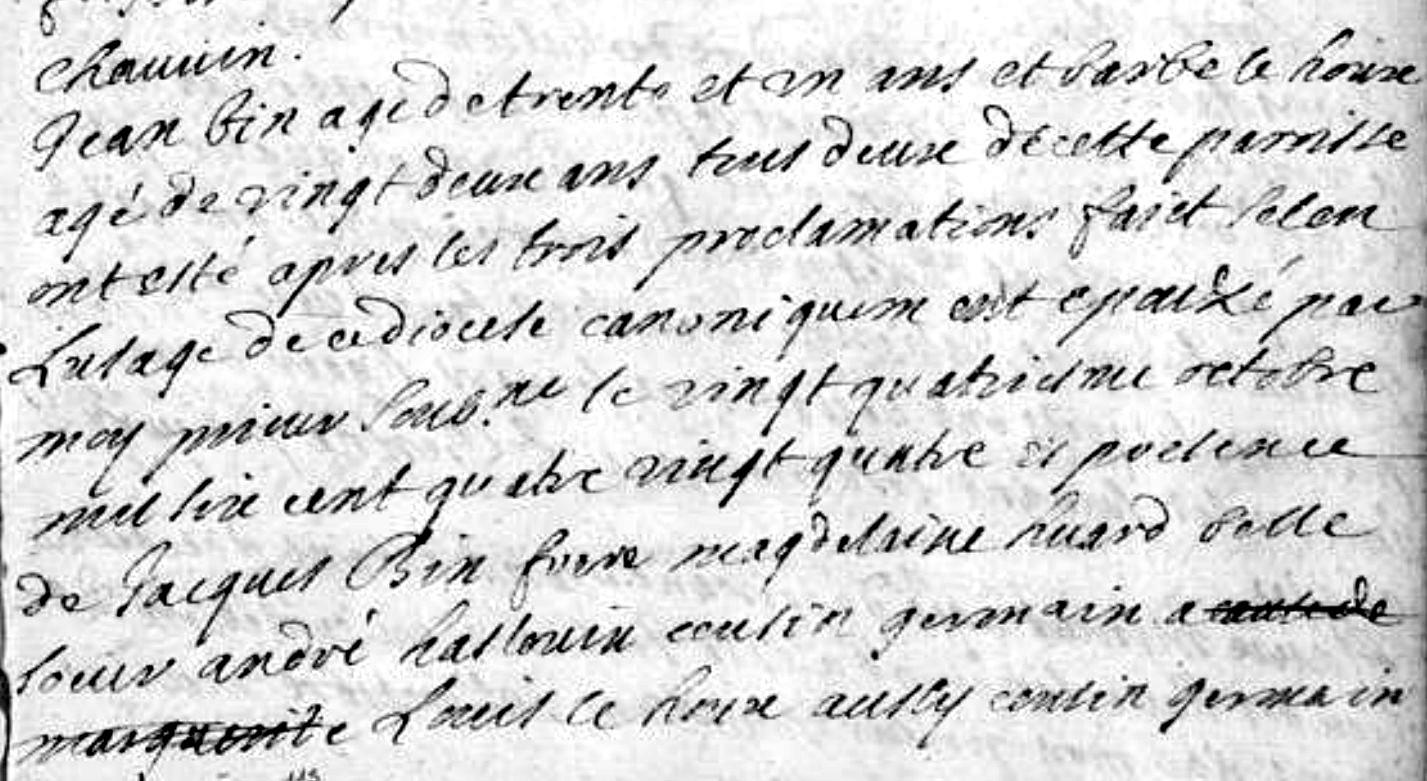 chauuin.
Jean bin agé de trente et un ans et barbe le houx
agé de vingt deux ans tous deux de cette parroisse
ont esté apres les trois proclamations faict selon
Lusage de ce diocese canoniquem ent epouzé par
moy prieur soub.ne le vingt quatriesme octobre
mil six cent quatre vingt quatre es presence
de Jacques Bin frere magdelaine huard belle
soeur andré hallouin cousin germain a cause de
marguerite Louis le houx aussy cousin germain